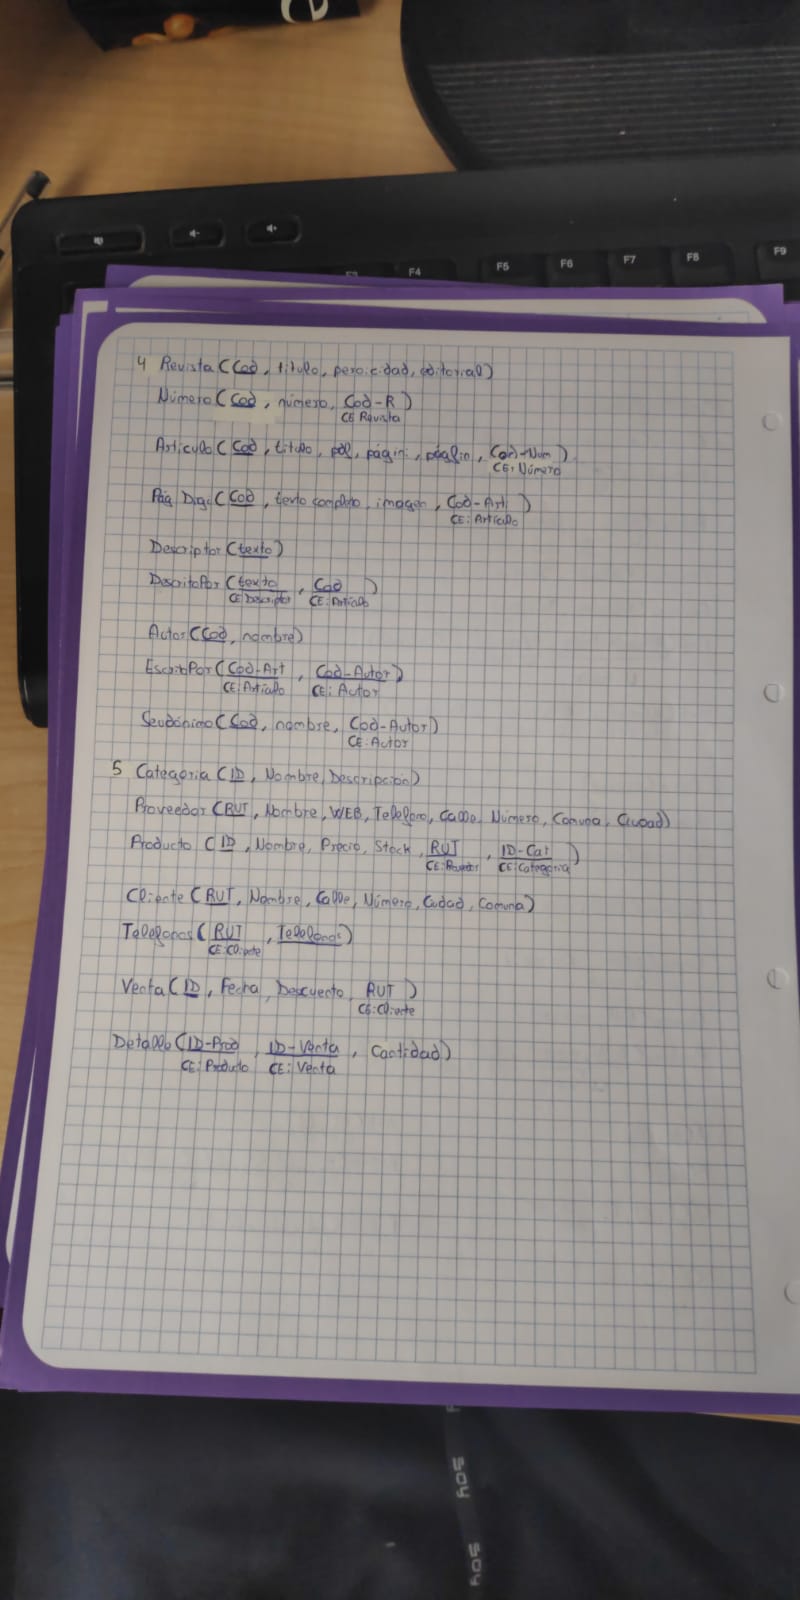 F4 F5 F6 F7 F8 F9
4 Revista (Cod, titulo, peroicidad, editorial)
Número (Cod, número, Cod-R)
CE Revista
Articulo (Cod, titulo, pdf, págini, págfin, Cod-Num)
CE: Número
Pág Digi (Cod, texto completo, imagen, Cod-Arti)
CE: Artículo
Descriptor (texto)
DescritoPor (texto, Cod)
CE Descriptor CE: Artículo
Autor (Cod, nombre)
EscritoPor (Cod-Art, Cod-Autor)
CE: Artículo CE: Autor
Seudónimo (Cod, nombre, Cod-Autor)
CE: Autor
5 Categoria (ID, Nombre, Descripción)
Proveedor (RUT, Nombre, WEB, Telefono, Calle, Número, Comuna, Ciudad)
Producto (ID, Nombre, Precio, Stock, RUT, ID-Cat)
CE: Proveedor CE: Categoria
Cliente (RUT, Nombre, Calle, Número, Ciudad, Comuna)
Telefonos (RUT, Telefonos)
CE: Cliente
Venta (ID, Fecha, Descuento, RUT)
CE: Cliente
Detalle (ID-Prod, ID-Venta, Cantidad)
CE: Producto CE: Venta
soy
soy